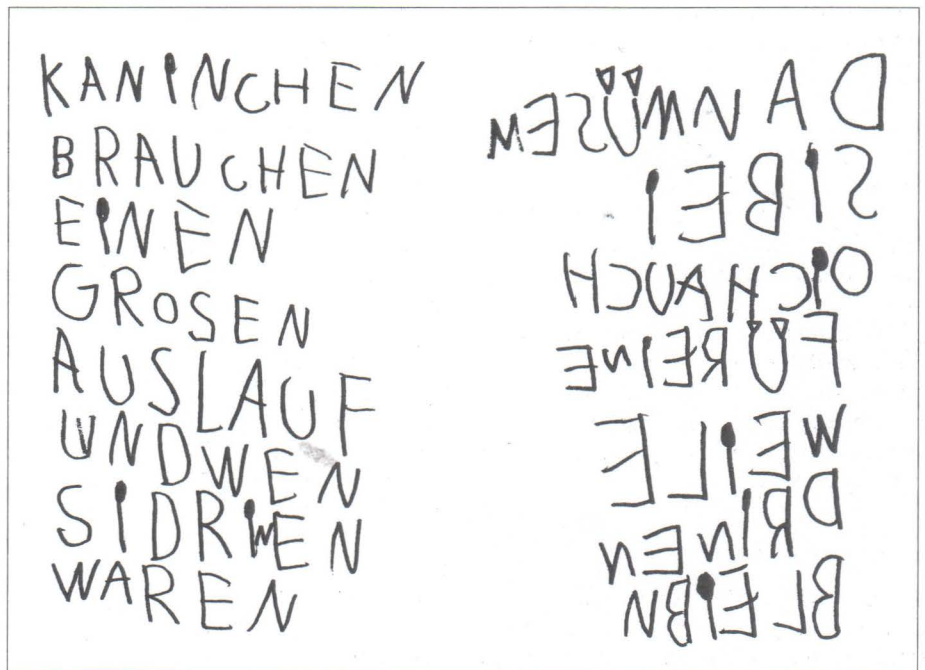 KANINCHEN
BRAUCHEN
EINEN
GROSEN
AUSLAUF
UNDWEN
SIDRINEN
WAREN
DANMÜSEN
SIBEI
OICHAUCH
FÜREINE
WEILE
DRINEN
BLEIBN